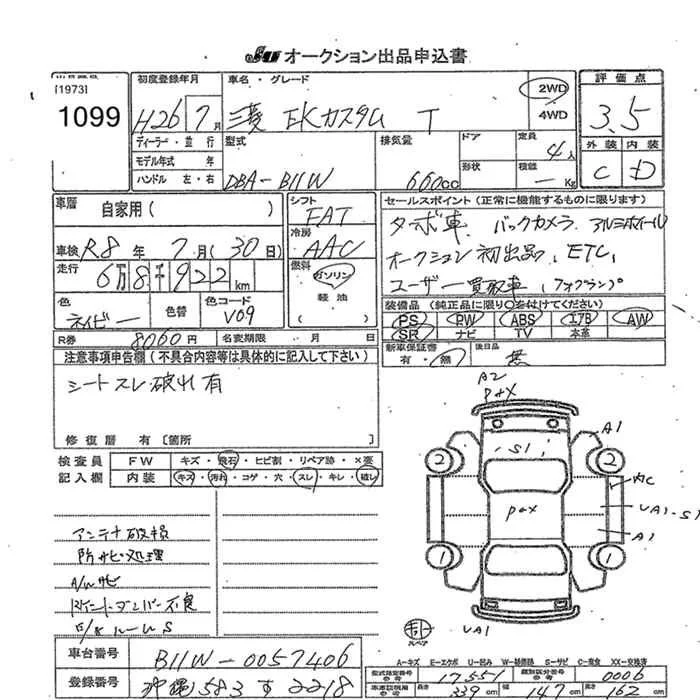 JU オークション出品申込書
[1973]
1099
初度登録年月
H26 7月
車名・グレード
三菱 EKカスタム T
2WD
4WD
評価点
3.5
外装 内装
C D
ディーラー・並行
モデル年式 年
ハンドル 左・右
型式
DBA-B11W
排気量
660cc
ドア
形状
定員
4人
積載
— Kg
車歴 自家用( )
車検 R8年 7月(30日)
走行 6万8千922km
色 ネイビー
色替
色コード V09
シフト FAT
冷房 AAC
燃料 ガソリン
軽油
セールスポイント(正常に機能するものに限ります)
ターボ車 バックカメラ アルミホイール
オークション初出品、ETC、
ユーザー買取車、フォグランプ
装備品(純正品に限り〇を付けてください)
PS PW ABS エアB AW
SR ナビ TV 本革
新車保証書 有・無
後日品 無
R券 8060円
名変期限 月 日
注意事項申告欄(不具合内容等は具体的に記入して下さい)
シートスレ破れ有
修復歴 有[箇所 ]
検査員記入欄
FW キズ・飛石・ヒビ割・リペア跡・×要
内装 キズ・汚れ・コゲ・穴・スレ・キレ・破レ
アンテナ破損
防サビ処理
A/Wサビ
ダンパー不良
ルームS
A2
P+X
A1
S1
2
2
内C
P+X
UA1-S1
A1
1
1
スペア
UA1
A-キズ E-エクボ U-凹み W-補修跡 S-サビ C-腐食 XX-交換済
車台番号 B11W-0057406
登録番号 沖縄 583 す 2218
型式指定番号 17551
類別区分番号 0006
長さ 339cm
幅 147cm
高さ 162cm